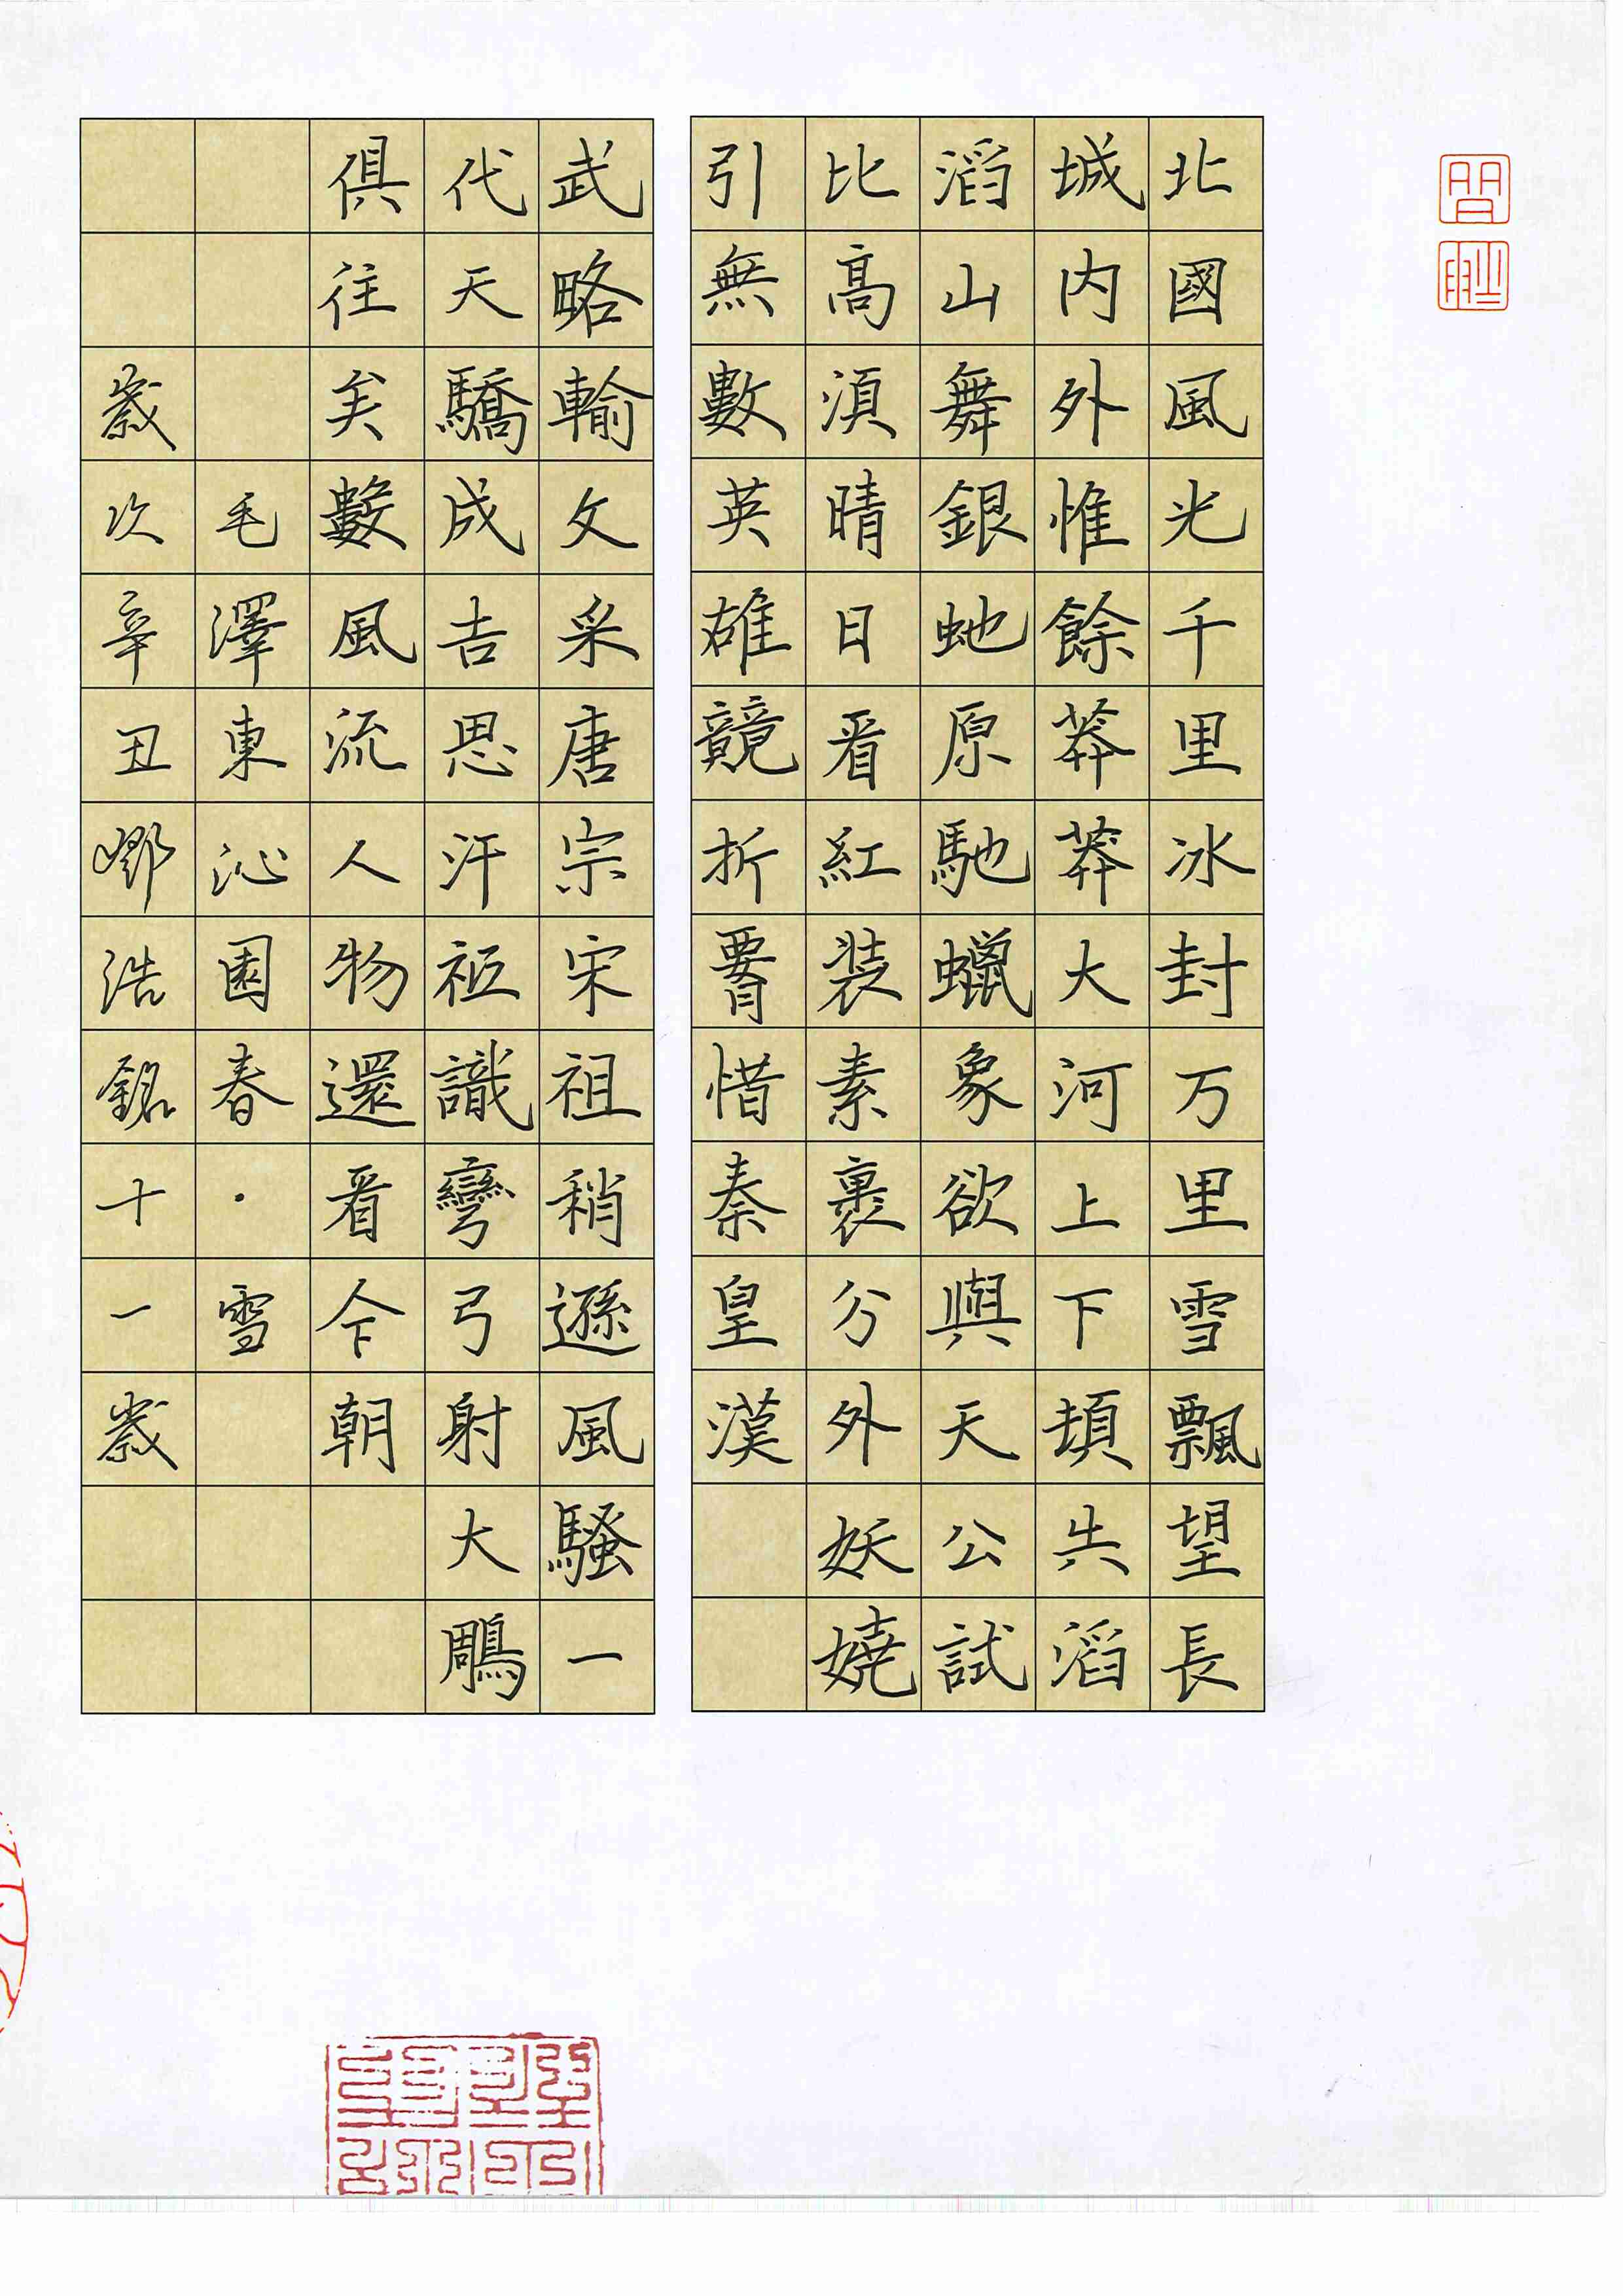 北國風光千里冰封万里雪飄望長
城内外惟餘莽莽大河上下頓失滔
滔山舞銀蛇原馳蠟象欲與天公試
比高須晴日看紅裝素裹分外妖嬈
引無數英雄競折腰惜秦皇漢
武略輸文采唐宗宋祖稍遜風騷一
代天驕成吉思汗祗識彎弓射大鵰
俱往矣數風流人物還看今朝
毛澤東沁園春·雪
歲次辛丑鄭浩銘十一歲